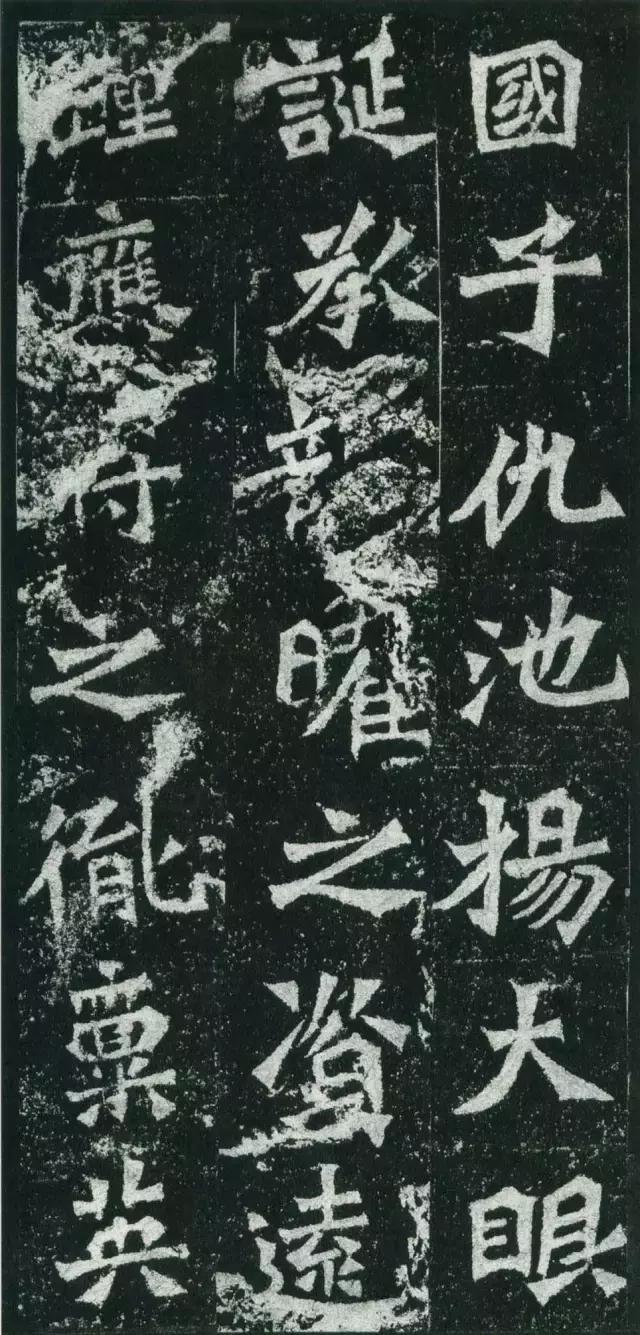 國子仇池揚大眼
誕承龍曜之資遠
踵應符之胤稟英